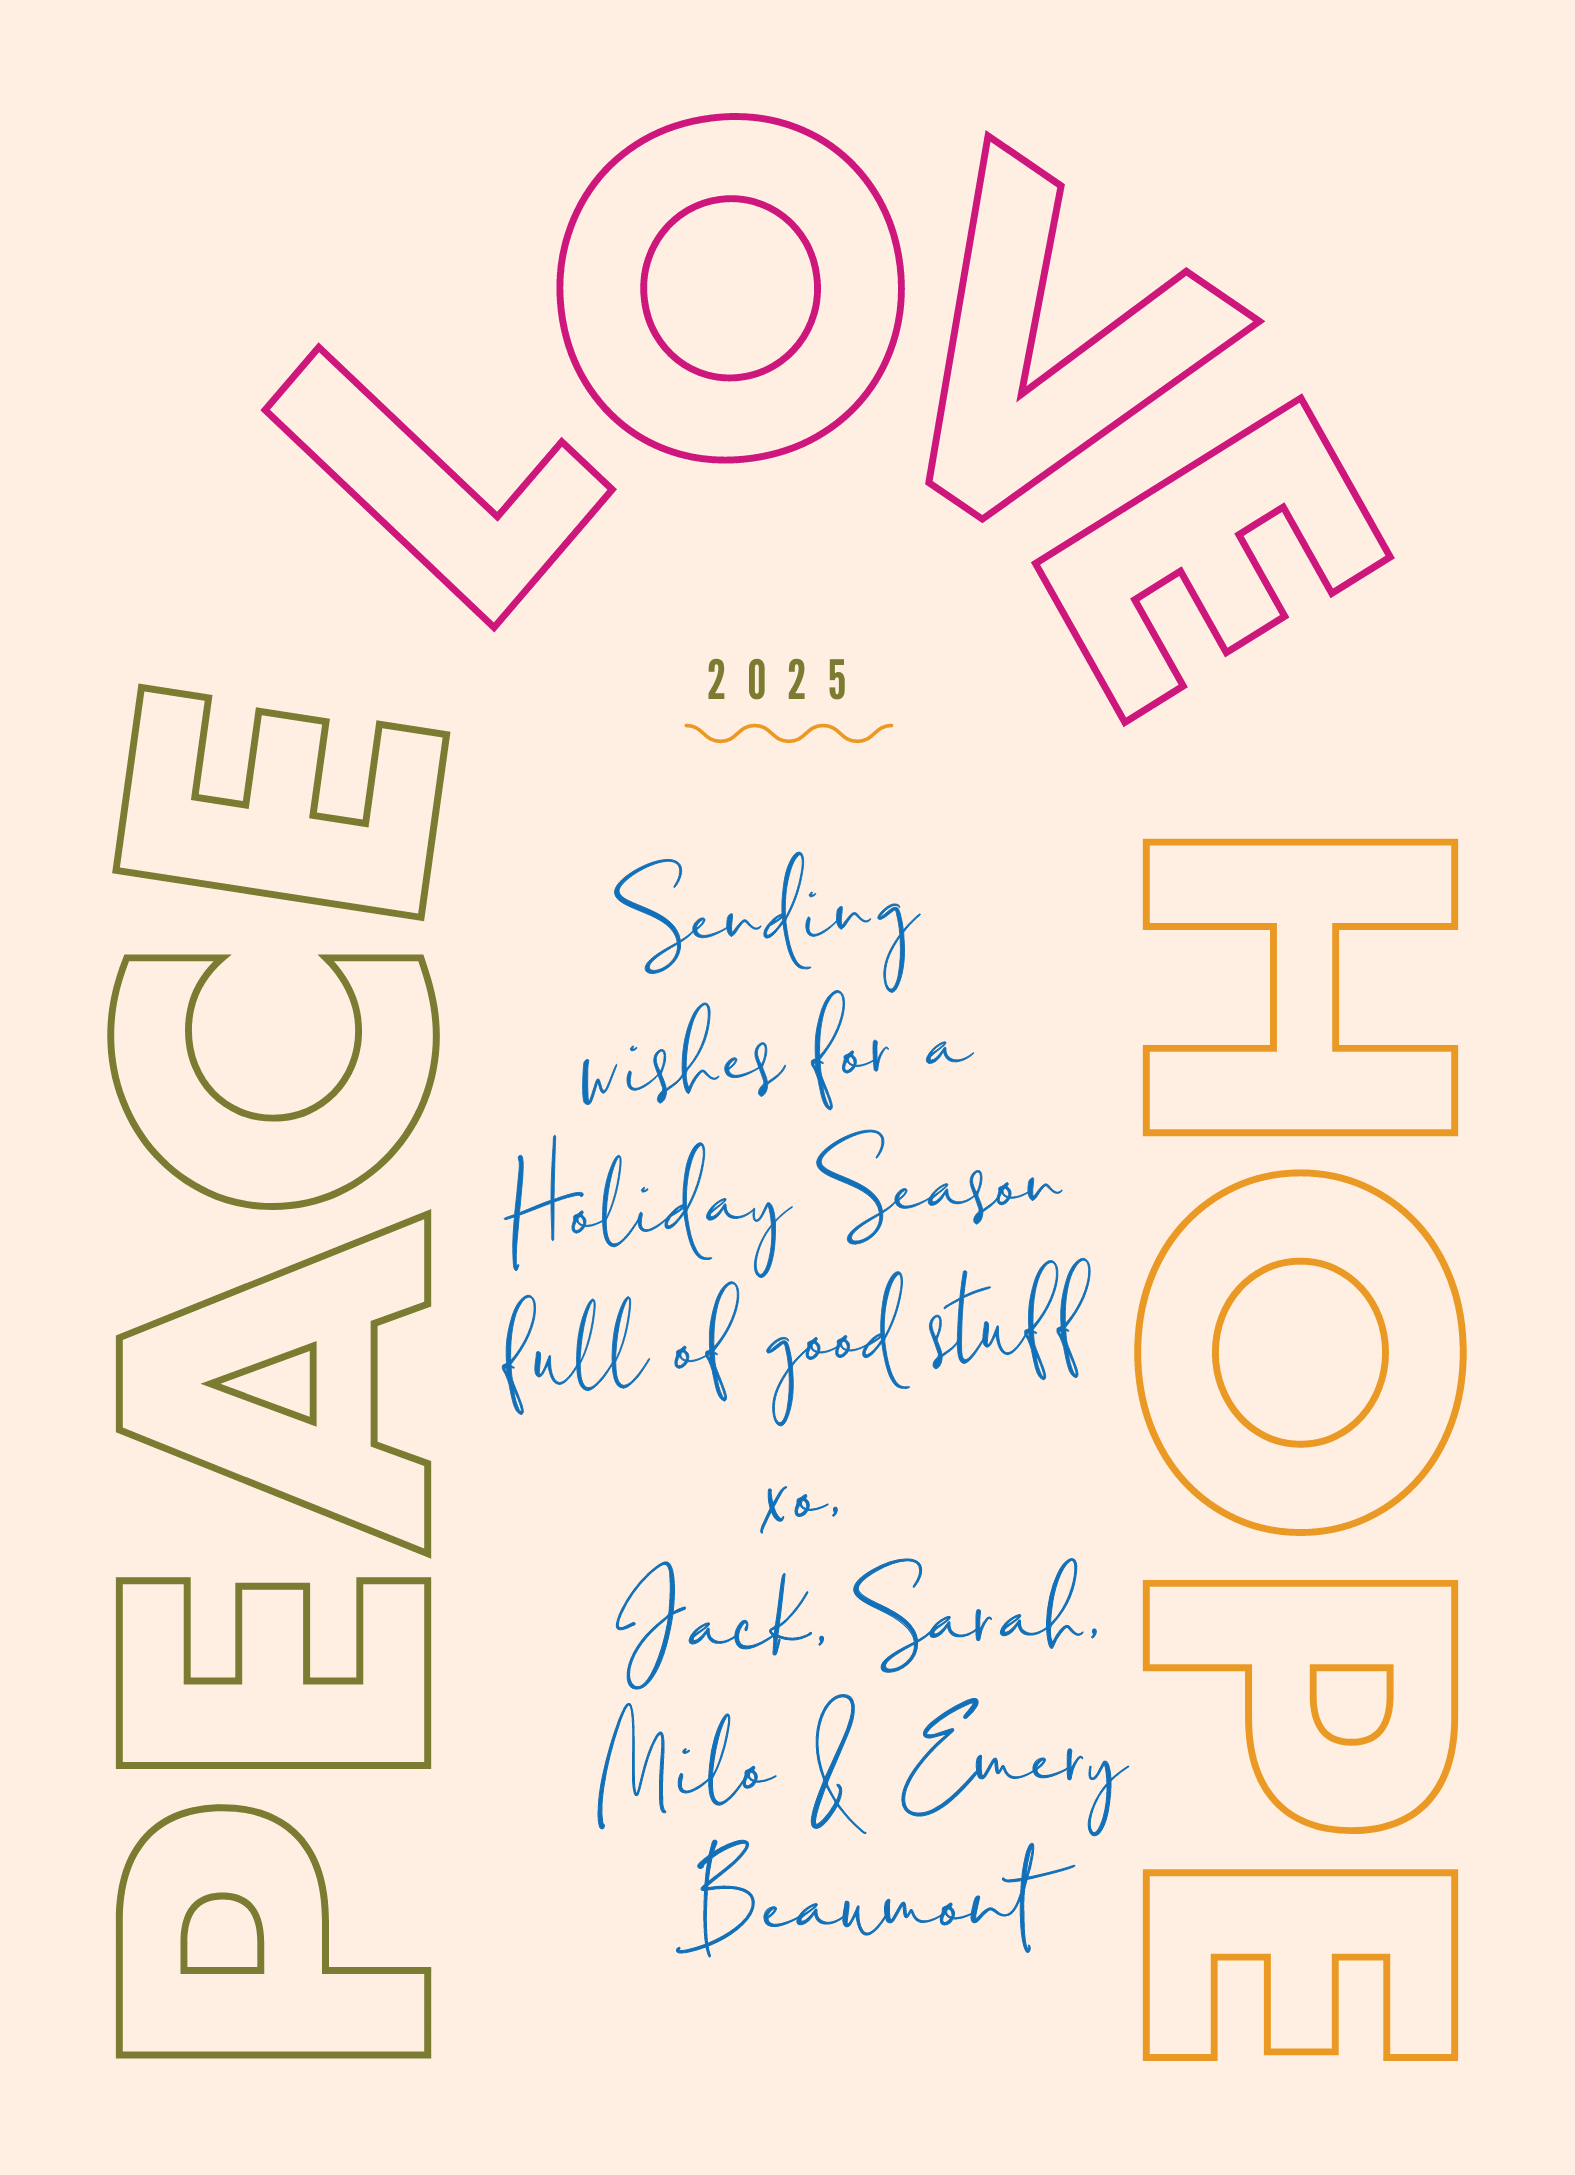 PEACE
LOVE
HOPE
2025
Sending
wishes for a
Holiday Season
full of good stuff
xo,
Jack, Sarah,
Milo & Emery
Beaumont